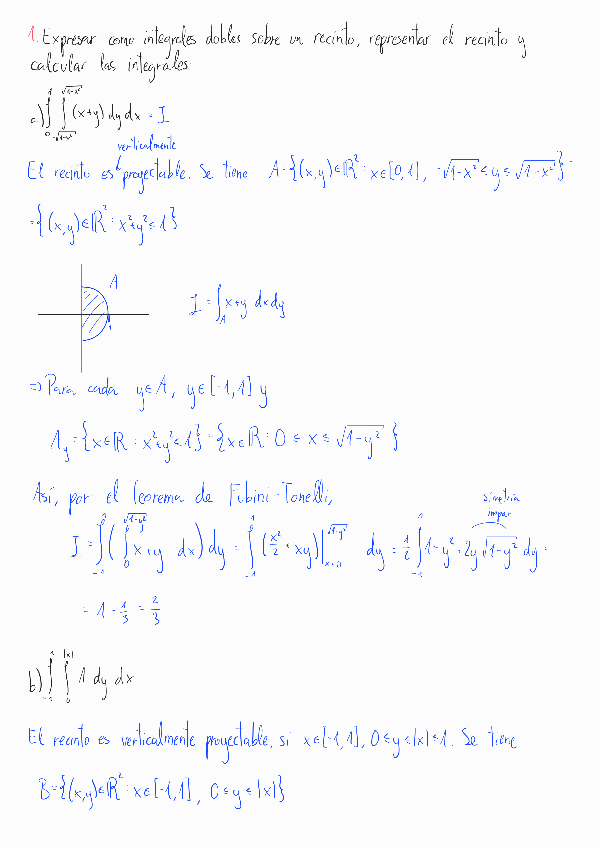 1. Expresar como integrales dobles sobre un recinto, representar el recinto y
calcular las integrales:
a) ∫_0^1 ∫_{-√(1-x²)}^{√(1-x²)} (x+y) dy dx = I
verticalmente
El recinto es proyectable. Se tiene A = {(x,y)∈ℝ² : x∈[0,1], -√(1-x²) ≤ y ≤ √(1-x²)} =
= {(x,y)∈ℝ² : x²+y² ≤ 1}
A
I = ∫_A x+y dxdy
1
=> Para cada y∈A, y∈[-1,1] y
A_y = {x∈ℝ : x²+y² ≤ 1} = {x∈ℝ : 0 ≤ x ≤ √(1-y²)}
Así, por el Teorema de Fubini-Tonelli,
simetría
impar
I = ∫_{-1}^1 (∫_0^{√(1-y²)} x+y dx) dy = ∫_{-1}^1 (x²/2 + xy)|_{x=0}^{√(1-y²)} dy = 1/2 ∫_{-1}^1 1-y²+2y√(1-y²) dy =
= 1 - 1/3 = 2/3
b) ∫_{-1}^1 ∫_0^{|x|} 1 dy dx
El recinto es verticalmente proyectable, si x∈[-1,1], 0≤y≤|x|≤1. Se tiene
B = {(x,y)∈ℝ² : x∈[-1,1], 0 ≤ y ≤ |x|}